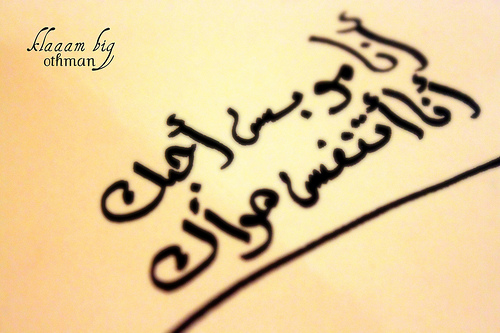 klaaam big
othman
أنا مو بس أحبك
أنا أتنفس هواك